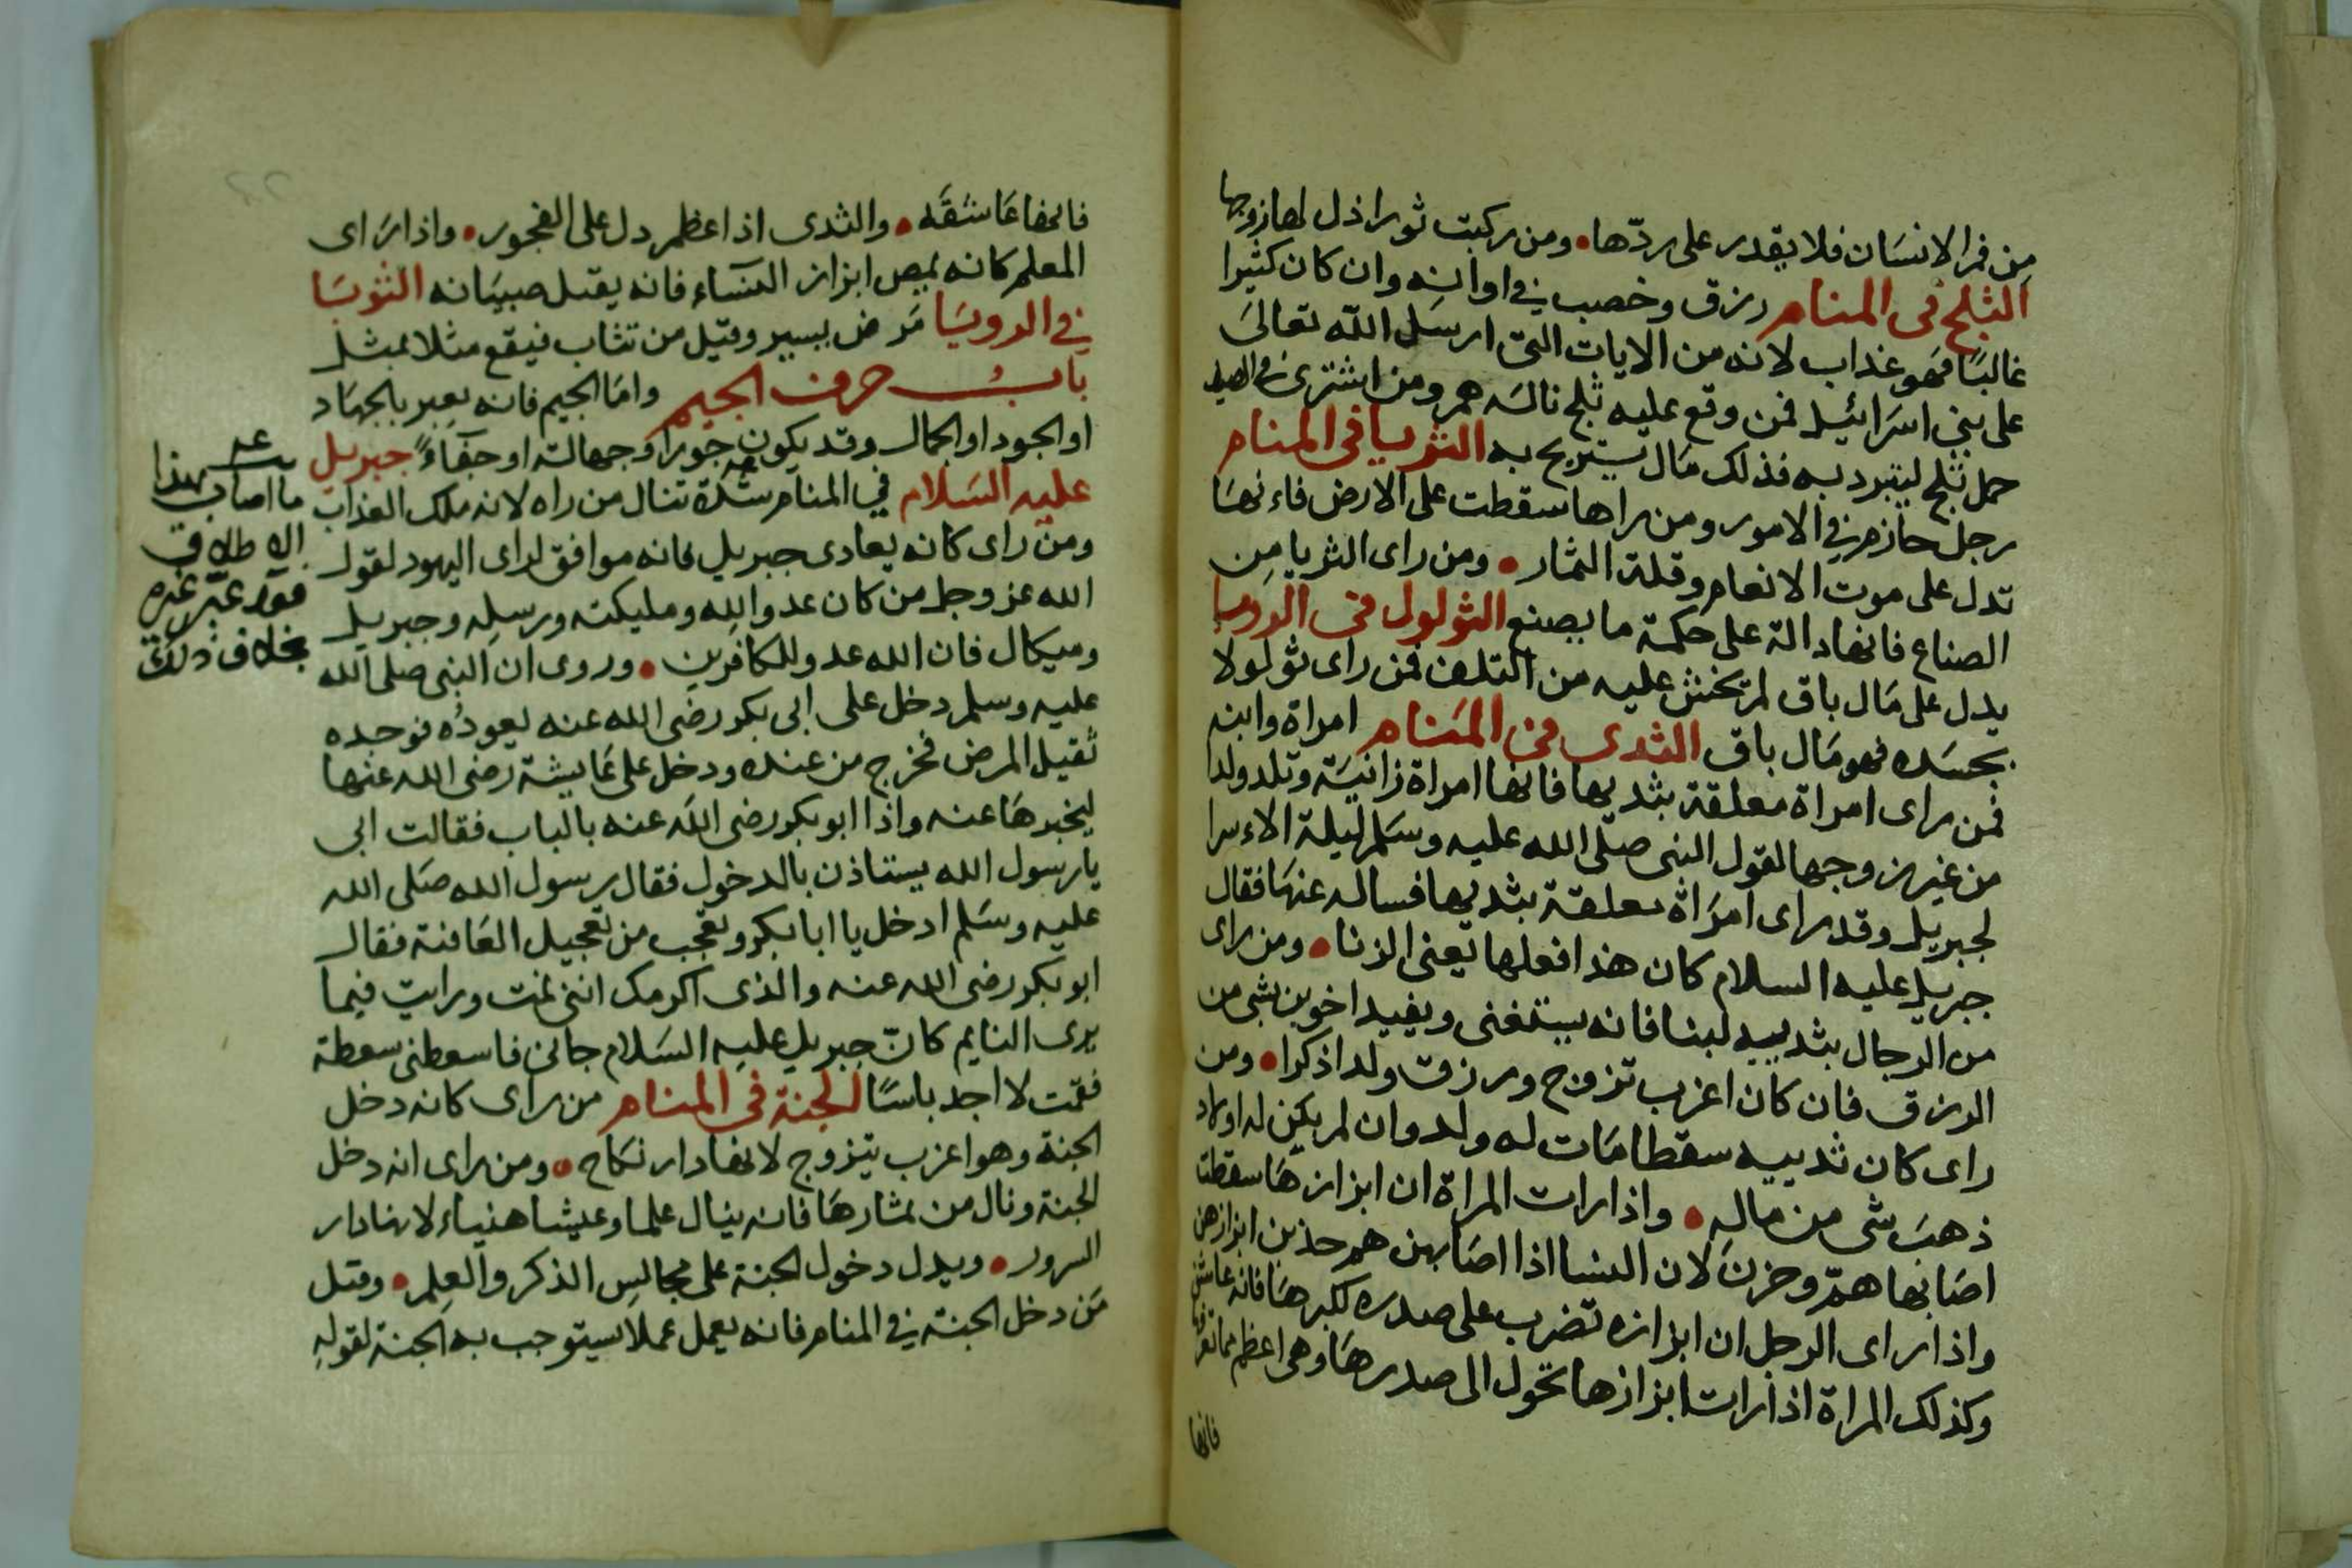 من فم الانسان فلا يقدر على ردّها • ومن ركبت ثورا ذل لها زوجها
الثلج فى المنام رزق وخصب في اوانه وان كان كثيرا
غالبًا فهو عذاب لانه من الايات التى ارسل الله تعالى
على بني اسرائيل فمن وقع عليه ثلج ناله هم ومن اشترى في الصيف
حمل ثلج ليتبرد به فذلك مال يستريح به الثريا فى المنام
رجل حازم في الامور ومن راها سقطت على الارض فاءنها
تدل على موت الانعام وقلة الثمار • ومن راى الثريا من
الصناع فانها دالة على حكمة ما يصنع الثولول فى الرويا
يدل على مال باق لم تخش عليه من التلف فمن راى ثولولا
بجسده فهو مال باق الثدى فى المنام امراة وابنه
فمن راى امراة معلقة بثديها فانها امراة زانية وتلد ولدا
من غير زوجها لقول النبى صلى الله عليه وسلم ليلة الاءسرا
لجبريل وقد راى امراة معلقة بثديها فساله عنها فقال
جبريل عليه السلام كان هذا فعلها يعنى الزنا • ومن راى
من الرجال بثدييه لبنا فانه يستغنى ويفيد اخوين بشى من
الرزق فان كان اعزب تزوج ورزق ولدا ذكرا • ومن
راى كان ثدييه سقطا مات له ولد وان لم يكن له اولاد
ذهب شى من ماله • واذا رات المراة ان ابزازها سقطت
اصابها همّ وحزن لان النسا اذا اصابهن هم حذين ابزازهن
واذا راى الرجل ان ابزازه تضرب على صدره لكبرها فانه عاشق
وكذلك المراة اذا رات ابزازها تحول الى صدرها وهى اعظم مما تعرفها
فانها
فانها عاشقه • والثدى اذا عظم دل على الفجور • واذا راى
المعلم كانه يمص ابزاز النساء فانه يقبل صبيانه الثوبا
في الرويا مرض يسير وقيل من تثاب فيقع مثلا بمثل
باب حرف الجيم واما الجيم فانه يعبر بالجهاد
او الجود او الجمال وقد يكون جورا وجهالة او جفاءً جبريل
عليه السلام في المنام شدة تنال من راه لانه ملك العذاب
ومن راى كانه يعادى جبريل فانه موافق لراى اليهود لقول
الله عز وجل من كان عدوا لله ومليكته ورسله وجبريل
وميكال فان الله عدو للكافرين • وروى ان النبى صلى الله
عليه وسلم دخل على ابى بكر رضى الله عنه يعوده فوجده
ثقيل المرض فخرج من عنده ودخل على عايشة رضى الله عنها
ليخبرها عنه واذا ابو بكر رضى الله عنه بالباب فقالت ابى
يا رسول الله يستاذن بالدخول فقال رسول الله صلى الله
عليه وسلم ادخل يا ابا بكر وتعجب من تعجيل العافية فقال
ابو بكر رضى الله عنه والذى اكرمك اننى نمت ورايت فيما
يرى النايم كانّ جبريل عليه السلام جانى فاسعطنى سعطة
فقمت لا اجد باسًا الجنة فى المنام من راى كانه دخل
الجنة وهو اعزب يتزوج لانها دار نكاح • ومن راى انه دخل
الجنة ونال من ثمارها فانه ينال علما وعيشا هنياء لانها دار
السرور • ويدل دخول الجنة على مجالس الذكر والعلم • وقيل
من دخل الجنة في المنام فانه يعمل عملا يستوجب به الجنة لقوله
ما اصاب بهذا
الاطلاق
فقد عبّر غيره
بخلاف ذلك